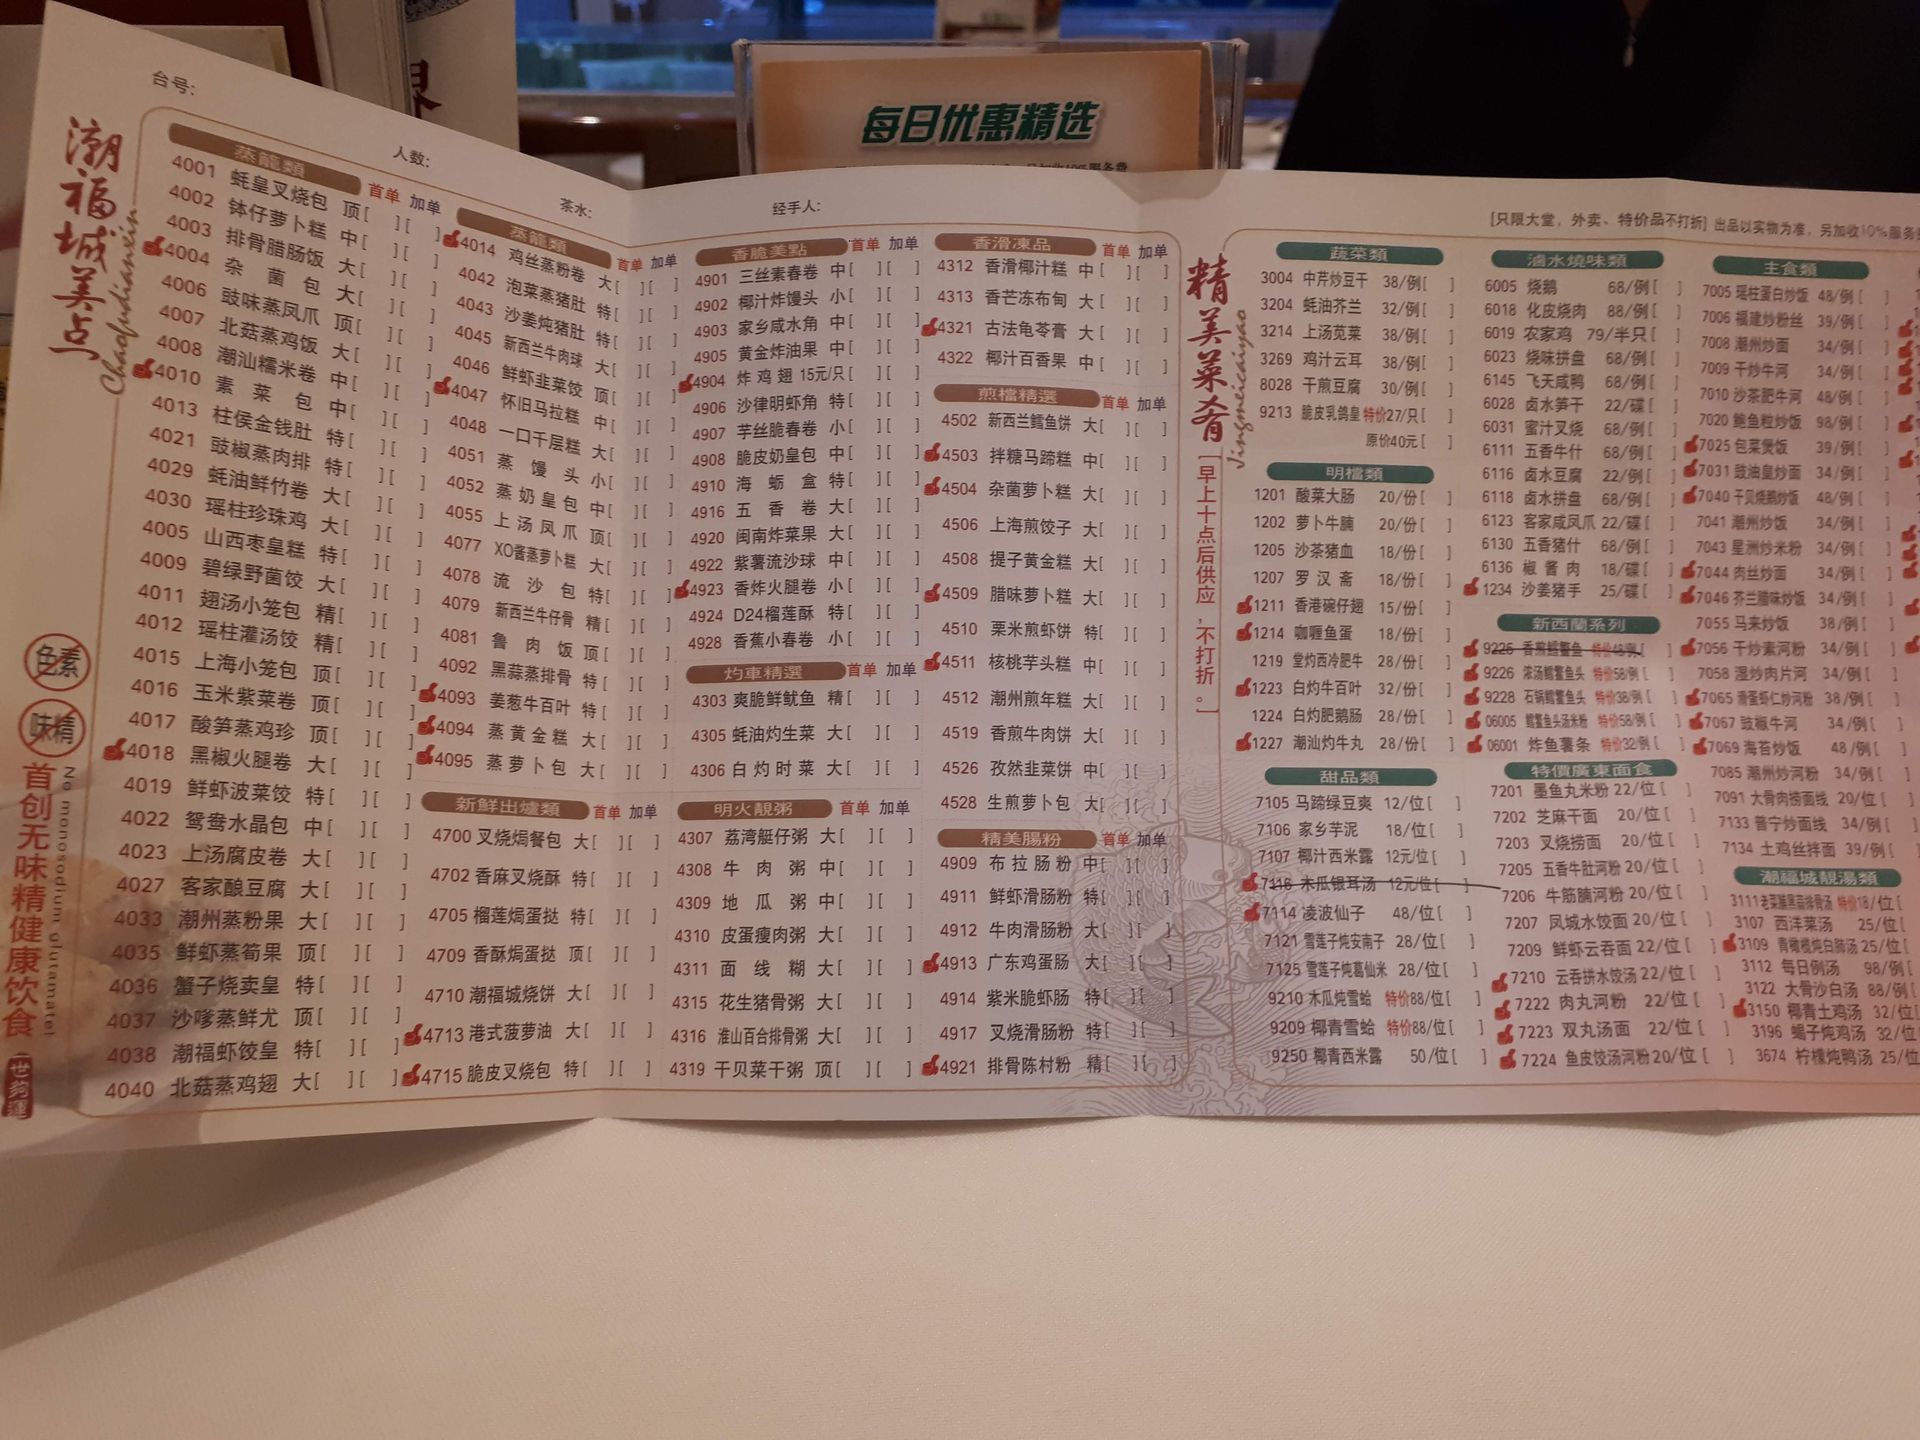 每日优惠精选
台号:
人数:
茶水:
经手人:
[只限大堂，外卖、特价品不打折] 出品以实物为准，另加收10%服务
潮福城美点
Chaofudianxin
色素
味精
首创无味精健康饮食
No monosodium glutamatel
蒸籠類 首单 加单
4001 蚝皇叉烧包 顶[ ][ ]
4002 钵仔萝卜糕 中[ ][ ]
4003 排骨腊肠饭 大[ ][ ]
4004 杂菌包 大[ ][ ]
4006 豉味蒸凤爪 顶[ ][ ]
4007 北菇蒸鸡饭 大[ ][ ]
4008 潮汕糯米卷 中[ ][ ]
4010 素菜包 中[ ][ ]
4013 柱侯金钱肚 特[ ][ ]
4021 豉椒蒸肉排 特[ ][ ]
4029 蚝油鲜竹卷 大[ ][ ]
4030 瑶柱珍珠鸡 大[ ][ ]
4005 山西枣皇糕 特[ ][ ]
4009 碧绿野菌饺 大[ ][ ]
4011 翅汤小笼包 精[ ][ ]
4012 瑶柱灌汤饺 精[ ][ ]
4015 上海小笼包 顶[ ][ ]
4016 玉米紫菜卷 顶[ ][ ]
4017 酸笋蒸鸡珍 顶[ ][ ]
4018 黑椒火腿卷 大[ ][ ]
4019 鲜虾波菜饺 特[ ][ ]
4022 鸳鸯水晶包 中[ ][ ]
4023 上汤腐皮卷 大[ ][ ]
4027 客家酿豆腐 大[ ][ ]
4033 潮州蒸粉果 大[ ][ ]
4035 鲜虾蒸筍果 顶[ ][ ]
4036 蟹子烧卖皇 特[ ][ ]
4037 沙嗲蒸鲜尤 顶[ ][ ]
4038 潮福虾饺皇 特[ ][ ]
4040 北菇蒸鸡翅 大[ ][ ]
蒸籠類 首单 加单
4014 鸡丝蒸粉卷 大[ ][ ]
4042 泡菜蒸猪肚 特[ ][ ]
4043 沙姜炖猪肚 特[ ][ ]
4045 新西兰牛肉球 大[ ][ ]
4046 鲜虾韭菜饺 顶[ ][ ]
4047 怀旧马拉糕 中[ ][ ]
4048 一口千层糕 大[ ][ ]
4051 蒸馒头 小[ ][ ]
4052 蒸奶皇包 中[ ][ ]
4055 上汤凤爪 顶[ ][ ]
4077 XO酱蒸萝卜糕 大[ ][ ]
4078 流沙包 特[ ][ ]
4079 新西兰牛仔骨 精[ ][ ]
4081 鲁肉饭 顶[ ][ ]
4092 黑蒜蒸排骨 特[ ][ ]
4093 姜葱牛百叶 特[ ][ ]
4094 蒸黄金糕 大[ ][ ]
4095 蒸萝卜包 大[ ][ ]
新鮮出爐類 首单 加单
4700 叉烧焗餐包 大[ ][ ]
4702 香麻叉烧酥 特[ ][ ]
4705 榴莲焗蛋挞 特[ ][ ]
4709 香酥焗蛋挞 顶[ ][ ]
4710 潮福城烧饼 大[ ][ ]
4713 港式菠萝油 大[ ][ ]
4715 脆皮叉烧包 特[ ][ ]
香脆美點 首单 加单
4901 三丝素春卷 中[ ][ ]
4902 椰汁炸馒头 小[ ][ ]
4903 家乡咸水角 中[ ][ ]
4905 黄金炸油果 中[ ][ ]
4904 炸鸡翅 15元/只[ ][ ]
4906 沙律明虾角 特[ ][ ]
4907 芋丝脆春卷 小[ ][ ]
4908 脆皮奶皇包 中[ ][ ]
4910 海蛎盒 特[ ][ ]
4916 五香卷 大[ ][ ]
4920 闽南炸菜果 大[ ][ ]
4922 紫薯流沙球 中[ ][ ]
4923 香炸火腿卷 小[ ][ ]
4924 D24榴莲酥 特[ ][ ]
4928 香蕉小春卷 小[ ][ ]
灼車精選 首单 加单
4303 爽脆鲜鱿鱼 精[ ][ ]
4305 蚝油灼生菜 大[ ][ ]
4306 白灼时菜 大[ ][ ]
明火靚粥 首单 加单
4307 荔湾艇仔粥 大[ ][ ]
4308 牛肉粥 中[ ][ ]
4309 地瓜粥 中[ ][ ]
4310 皮蛋瘦肉粥 大[ ][ ]
4311 面线糊 大[ ][ ]
4315 花生猪骨粥 大[ ][ ]
4316 淮山百合排骨粥 大[ ][ ]
4319 干贝菜干粥 顶[ ][ ]
香滑凍品 首单 加单
4312 香滑椰汁糕 中[ ][ ]
4313 香芒冻布甸 大[ ][ ]
4321 古法龟苓膏 大[ ][ ]
4322 椰汁百香果 中[ ][ ]
煎檔精選 首单 加单
4502 新西兰鳕鱼饼 大[ ][ ]
4503 拌糖马蹄糕 中[ ][ ]
4504 杂菌萝卜糕 大[ ][ ]
4506 上海煎饺子 大[ ][ ]
4508 提子黄金糕 大[ ][ ]
4509 腊味萝卜糕 大[ ][ ]
4510 栗米煎虾饼 特[ ][ ]
4511 核桃芋头糕 中[ ][ ]
4512 潮州煎年糕 大[ ][ ]
4519 香煎牛肉饼 大[ ][ ]
4526 孜然韭菜饼 中[ ][ ]
4528 生煎萝卜包 大[ ][ ]
精美腸粉 首单 加单
4909 布拉肠粉 中[ ][ ]
4911 鲜虾滑肠粉 特[ ][ ]
4912 牛肉滑肠粉 大[ ][ ]
4913 广东鸡蛋肠 大[ ][ ]
4914 紫米脆虾肠 特[ ][ ]
4917 叉烧滑肠粉 特[ ][ ]
4921 排骨陈村粉 精[ ][ ]
精美菜肴
Jingmeicaiyao
[早上十点后供应,不打折。]
蔬菜類
3004 中芹炒豆干 38/例[ ]
3204 蚝油芥兰 32/例[ ]
3214 上汤苋菜 38/例[ ]
3269 鸡汁云耳 38/例[ ]
8028 干煎豆腐 30/例[ ]
9213 脆皮乳鸽皇 特价27/只[ ]
原价40元[ ]
明檔類
1201 酸菜大肠 20/份[ ]
1202 萝卜牛腩 20/份[ ]
1205 沙茶猪血 18/份[ ]
1207 罗汉斋 18/份[ ]
1211 香港碗仔翅 15/份[ ]
1214 咖喱鱼蛋 18/份[ ]
1219 堂灼西冷肥牛 28/份[ ]
1223 白灼牛百叶 32/份[ ]
1224 白灼肥鹅肠 28/份[ ]
1227 潮汕灼牛丸 28/份[ ]
甜品類
7105 马蹄绿豆爽 12/位[ ]
7106 家乡芋泥 18/位[ ]
7107 椰汁西米露 12元/位[ ]
7116 木瓜银耳汤 12元/位[ ]
7114 凌波仙子 48/位[ ]
7121 雪莲子炖安南子 28/位[ ]
7125 雪莲子炖葛仙米 28/位[ ]
9210 木瓜炖雪蛤 特价88/位[ ]
9209 椰青雪蛤 特价88/位[ ]
9250 椰青西米露 50/位[ ]
滷水燒味類
6005 烧鹅 68/例[ ]
6018 化皮烧肉 88/例[ ]
6019 农家鸡 79/半只[ ]
6023 烧味拼盘 68/例[ ]
6145 飞天咸鸭 68/例[ ]
6028 卤水笋干 22/碟[ ]
6031 蜜汁叉烧 68/例[ ]
6111 五香牛什 68/例[ ]
6116 卤水豆腐 22/碟[ ]
6118 卤水拼盘 68/例[ ]
6123 客家咸凤爪 22/碟[ ]
6130 五香猪什 68/例[ ]
6136 椒酱肉 18/碟[ ]
1234 沙姜猪手 25/碟[ ]
新西蘭系列
9226 浓汤鳕鳘鱼头 特价58/例[ ]
9228 石锅鳕鳘鱼头 特价38/例[ ]
06005 鳕鳘鱼头汤米粉 特价58/例[ ]
06001 炸鱼薯条 特价32/例[ ]
特價廣東面食
7201 墨鱼丸米粉 22/位[ ]
7202 芝麻干面 20/位[ ]
7203 叉烧捞面 20/位[ ]
7205 五香牛肚河粉 20/位[ ]
7206 牛筋腩河粉 20/位[ ]
7207 凤城水饺面 20/位[ ]
7209 鲜虾云吞面 22/位[ ]
7210 云吞拼水饺汤 22/位[ ]
7222 肉丸河粉 22/位[ ]
7223 双丸汤面 22/位[ ]
7224 鱼皮饺汤河粉 20/位[ ]
主食類
7005 瑶柱蛋白炒饭 48/例[
7006 福建炒粉丝 39/例[
7008 潮州炒面 34/例[
7009 干炒牛河 34/例[
7010 沙茶肥牛河 48/例[
7020 鲍鱼粒炒饭 98/例[
7025 包菜煲饭 39/例[
7031 豉油皇炒面 34/例[
7040 干贝烧鹅炒饭 48/例[
7041 潮州炒饭 34/例[
7043 星洲炒米粉 34/例[
7044 肉丝炒面 34/例[
7046 芥兰腊味炒饭 34/例[
7055 马来炒饭 38/例[
7056 干炒素河粉 34/例[
7058 湿炒肉片河 34/例[
7065 滑蛋虾仁炒河粉 38/例[
7067 豉椒牛河 34/例[
7069 海苔炒饭 48/例[
7085 潮州炒河粉 34/例[
7091 大骨肉捞面线 20/位[
7133 普宁炒面线 34/例[
7134 土鸡丝拌面 39/例[
潮福城靚湯類
3107 西洋菜汤 25/位[
3109 青橄榄炖白肺汤 25/位[
3112 每日例汤 98/例[
3122 大骨沙白汤 88/例[
3150 椰青土鸡汤 32/位[
3196 蝎子炖鸡汤 32/位
3674 柠檬炖鸭汤 25/位